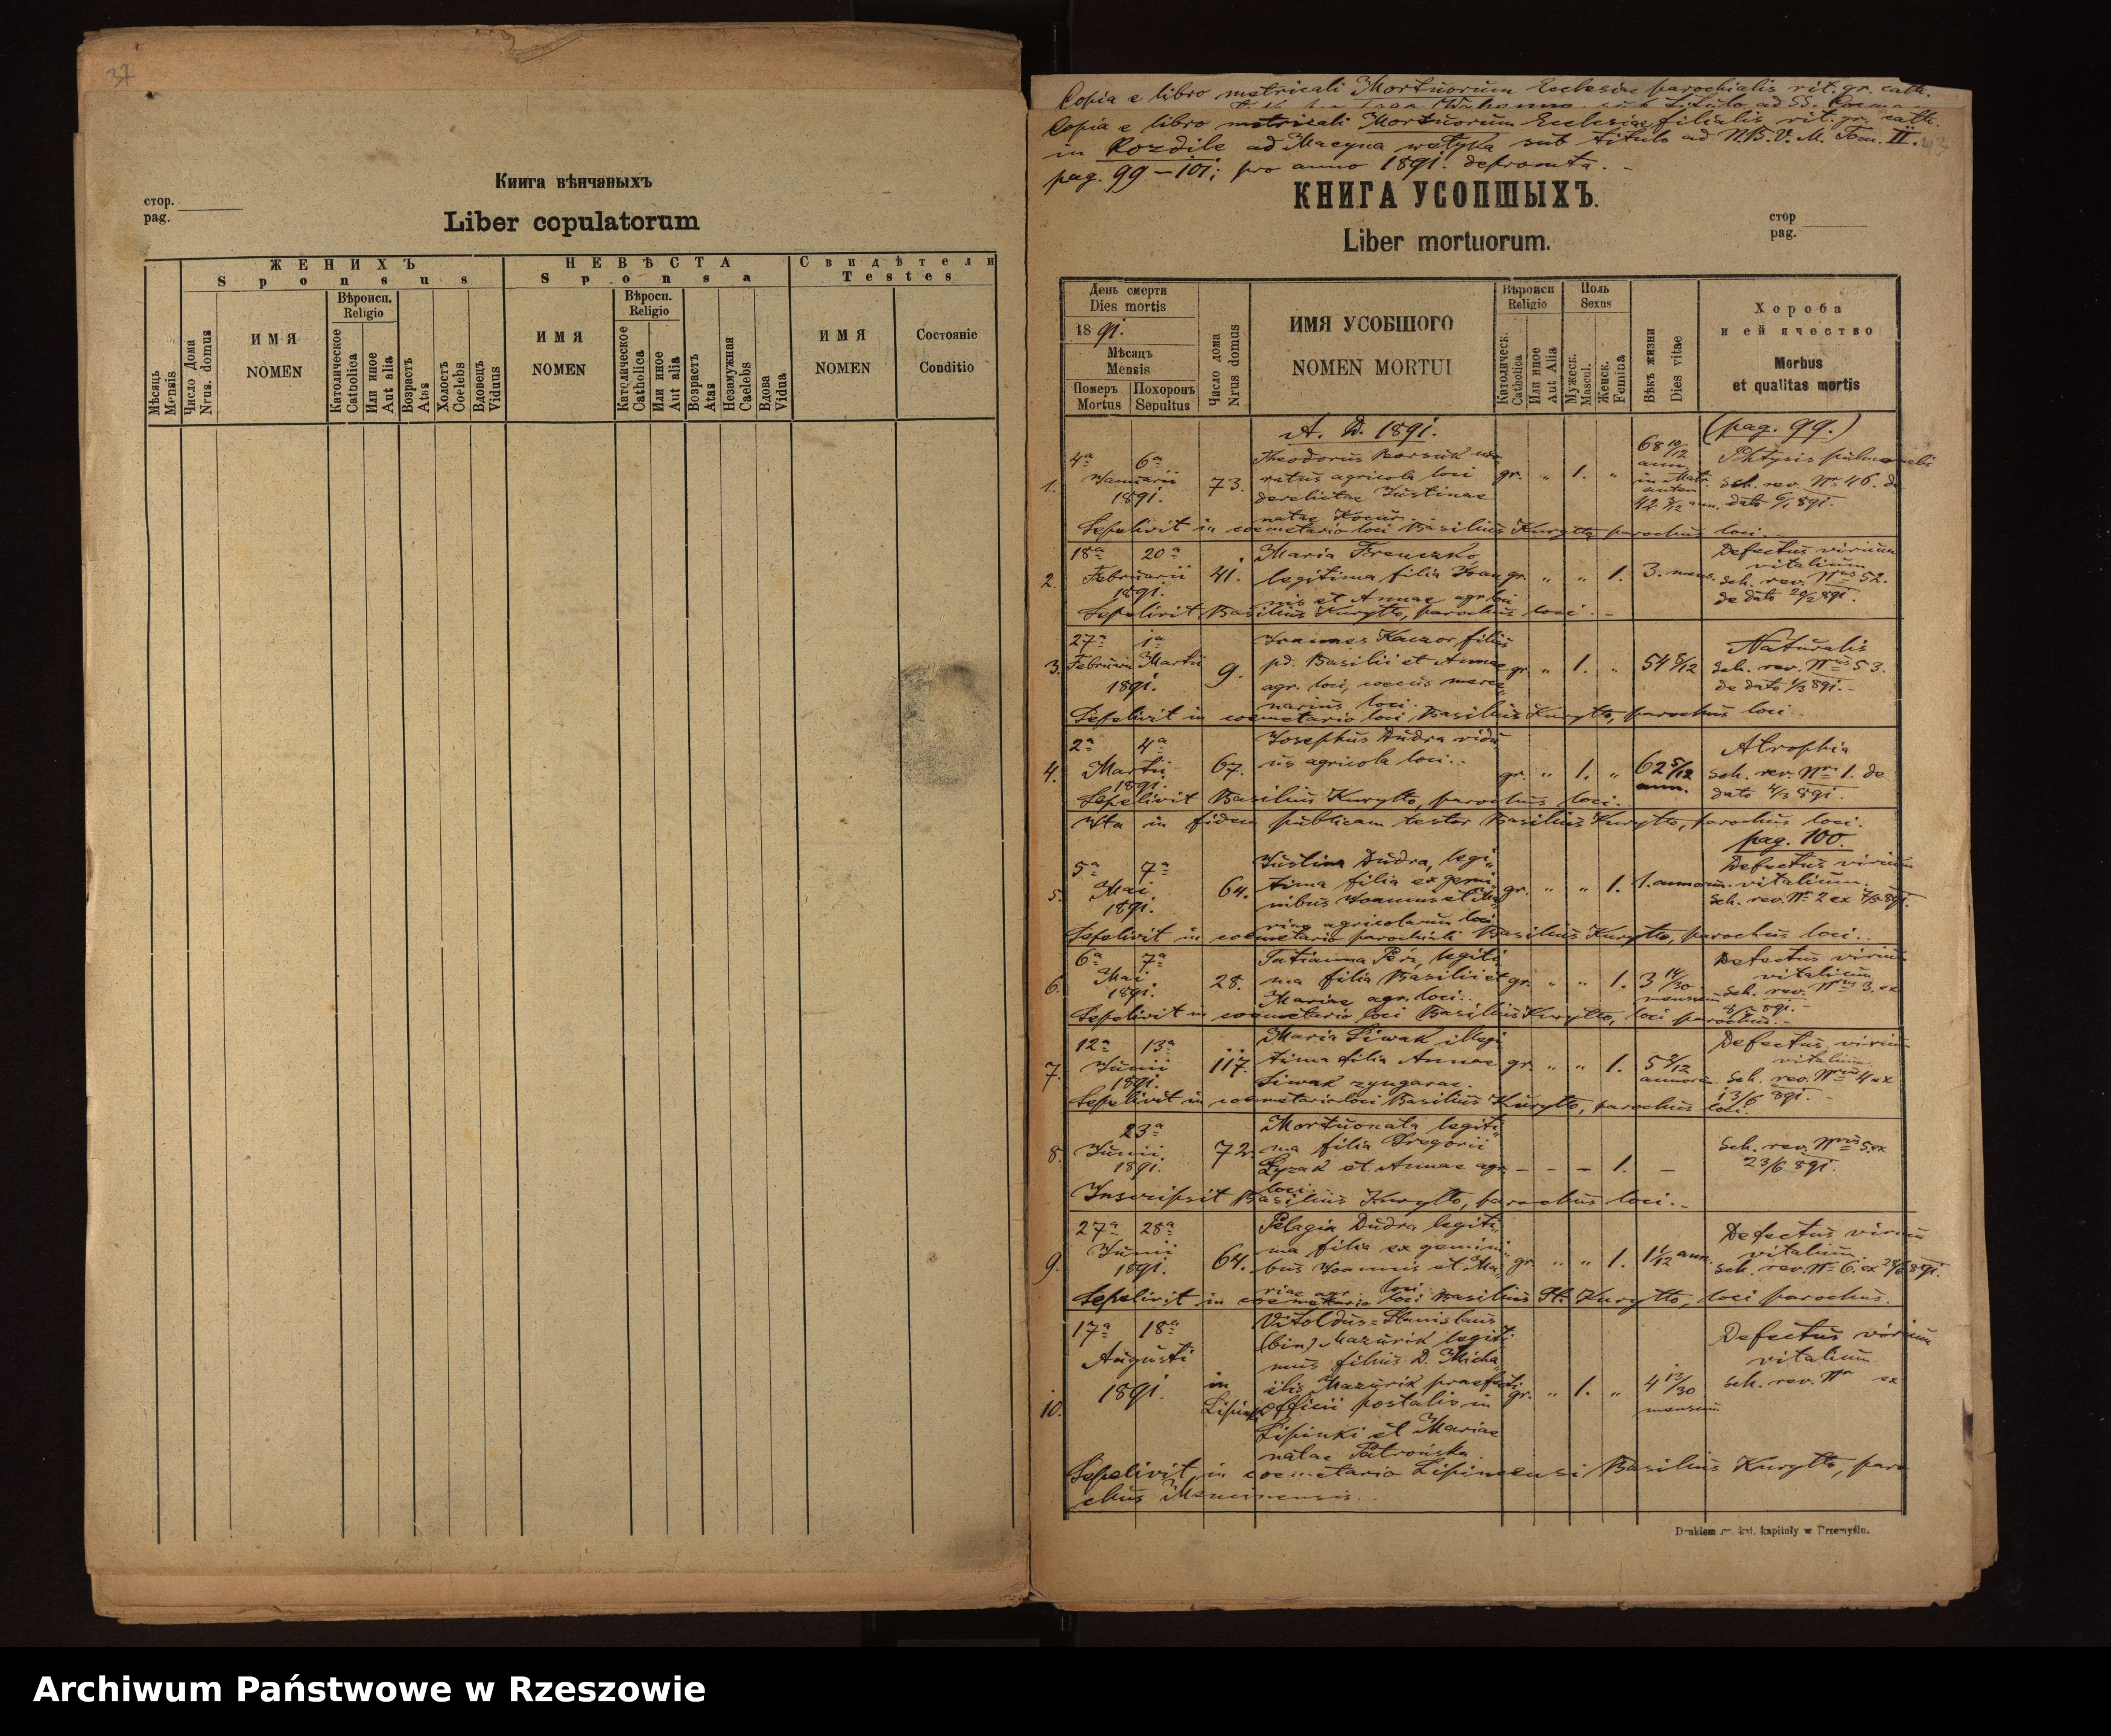 37
Книга вѣнчаныхъ
стор.
pag.
Liber copulatorum
ЖЕНИХЪ
Sponsus
НЕВѢСТА
Sponsa
Свидѣтели
Testes
Мѣсяць
Mensis
Число Дома
Nrus. domus
ИМЯ
NOMEN
Вѣроисп.
Religio
Католическое
Catholica
Или иное
Aut alia
Возрастъ
Atas
Холостъ
Coelebs
Вдовець
Viduus
ИМЯ
NOMEN
Вѣросп.
Religio
Католическое
Catholica
Или иное
Aut alia
Возрастъ
Atas
Незамужная
Caelebs
Вдова
Vidua
ИМЯ
NOMEN
Состояніе
Conditio
Copia e libro metricali Mortuorum Ecclesiae parochialis rit. gr. cath.
Copia e libro metricali Mortuorum Ecclesiae filialis rit. gr. cath.
in Rozdile ad Macyna welyka sub titulo ad N.B.V.M. Tom. II.
pag. 99 – 101; pro anno 1891. depromta. –
КНИГА УСОПШЫХЪ.
Liber mortuorum.
стор
pag.
День смерти
Dies mortis
1891.
Мѣсяць
Mensis
Померъ
Mortus
Похоронъ
Sepultus
Число дома
Nrus domus
ИМЯ УСОБШОГО
NOMEN MORTUI
Вѣроисп
Religio
Католическ.
Catholica
Или иное
Aut Alia
Поль
Sexus
Мужеск.
Mascul.
Женск.
Femina
Вѣкъ жизни
Dies vitae
Хороба
и ей ячество
Morbus
et qualitas mortis
A. D. 1891. (pag. 99.)
1. 4a 6a Januarii 1891. 73. Theodorus Borsuk
ratus agricola loci
derelictae Justinae
natae Kocur. gr. „ 1. „ 68 10/12 ann. in Matr. autem 42 3/12 ann. Phtysis pulmonalis
sch. rev. Nr. 46. de
dato 6/1 891.
Sepelivit in coemetario loci Basilius Kurytto parochus loci. –
2. 18a 20a Februarii 1891. 41. Maria Frenczko
legitima filia Joan
nis et Annae agr. loci gr. „ „ 1. 3. mens. Defectus virium
vitalium
sch. rev. Nrus 52.
de dato 20/2 891.
Sepelivit Basilius Kurytto, parochus loci. –
3. 27a 1a Februarii Martii 1891. 9. Joannes Kaczor filius
pd. Basilii et Annae
agr. loci, coecus merce
narius loci. gr. „ 1. „ 54 8/12 Naturalis
sch. rev. Nrus 53.
de dato 1/3 891. –
Sepelivit in coemetario loci Basilius Kurytto, parochus loci.
4. 2a 4a Martii 1891. 67. Josephus Dudra vidu
us agricola loci.. gr. „ 1. „ 62 5/12 ann. Atrophia
sch. rev. Nri 1. de
dato 4/3 891.
Sepelivit Basilius Kurytto, parochus loci.
Ita in fidem publicam testor Basilius Kurytto, parochus loci.
pag. 100.
5. 5a 7a Mai 1891. 64. Justina Dudra, legi
tima filia ex gemi
nibus Joannis et Ma
riae agricolarum loci gr. „ „ 1. 1. annorum. Defectus virium
vitalium.
sch. rev. Nr 2 ex 7/5 891.
Sepelivit in coemetario parochiali Basilius Kurytto, parochus loci..
6. 6a 7a Mai 1891. 28. Tatianna Peś, legiti
ma filia Basilii et
Mariae agr. loci.. gr. „ „ 1. 3 14/30 mensium Defectus virium
vitalium
sch. rev. Nrus 3. ex
8/5 891.
Sepelivit in coemetario loci Basilius Kurytto, loci parochus. –
7. 12a 13a Junii 1891. 117. Maria Siwak illegi
tima filia Annae
Siwak zyngarae. gr. „ „ 1. 5 2/12 annorum. Defectus virium
vitalium
sch. rev. Nrus 4 ex
13/6 891. –
Sepelivit in coemetario loci Basilius Kurytto, parochus loci.
8. 23a Junii 1891. 72. Mortuonata legiti
ma filia Gregorii
Łyzak et Annae agr.
loci.. – – – 1. – sch. rev. Nrus 5 ex
23/6 891.
Inscripsit Basilius Kurytto, parochus loci. –
9. 27a 28a Junii 1891. 64. Pelagia Dudra legiti
ma filia ex gemini
bus Joannis et Ma
riae agr. loci. gr. „ „ 1. 1 1/12 ann. Defectus virium
vitalium.
sch. rev. Nr 6. ex 28/6 891.
Sepelivit in coemetario loci Basilius Kurytto, loci parochus.
10. 17a 18a Augusti 1891. in Lipinki Vitoldus=Stanislaus
(bin) Mazurik legiti
mus filius D. Micha
elis Mazurik praefecti
officii postalis in
Lipinki et Mariae
natae Patrońska gr. „ 1. „ 4 13/30 mensium Defectus virium
vitalium
sch. rev. Nr ex
Sepelivit in coemetario Lipincensi Basilius Kurytto, paro
chus Mencinensis.
Drukiem kapituły w Przemyślu.
Archiwum Państwowe w Rzeszowie